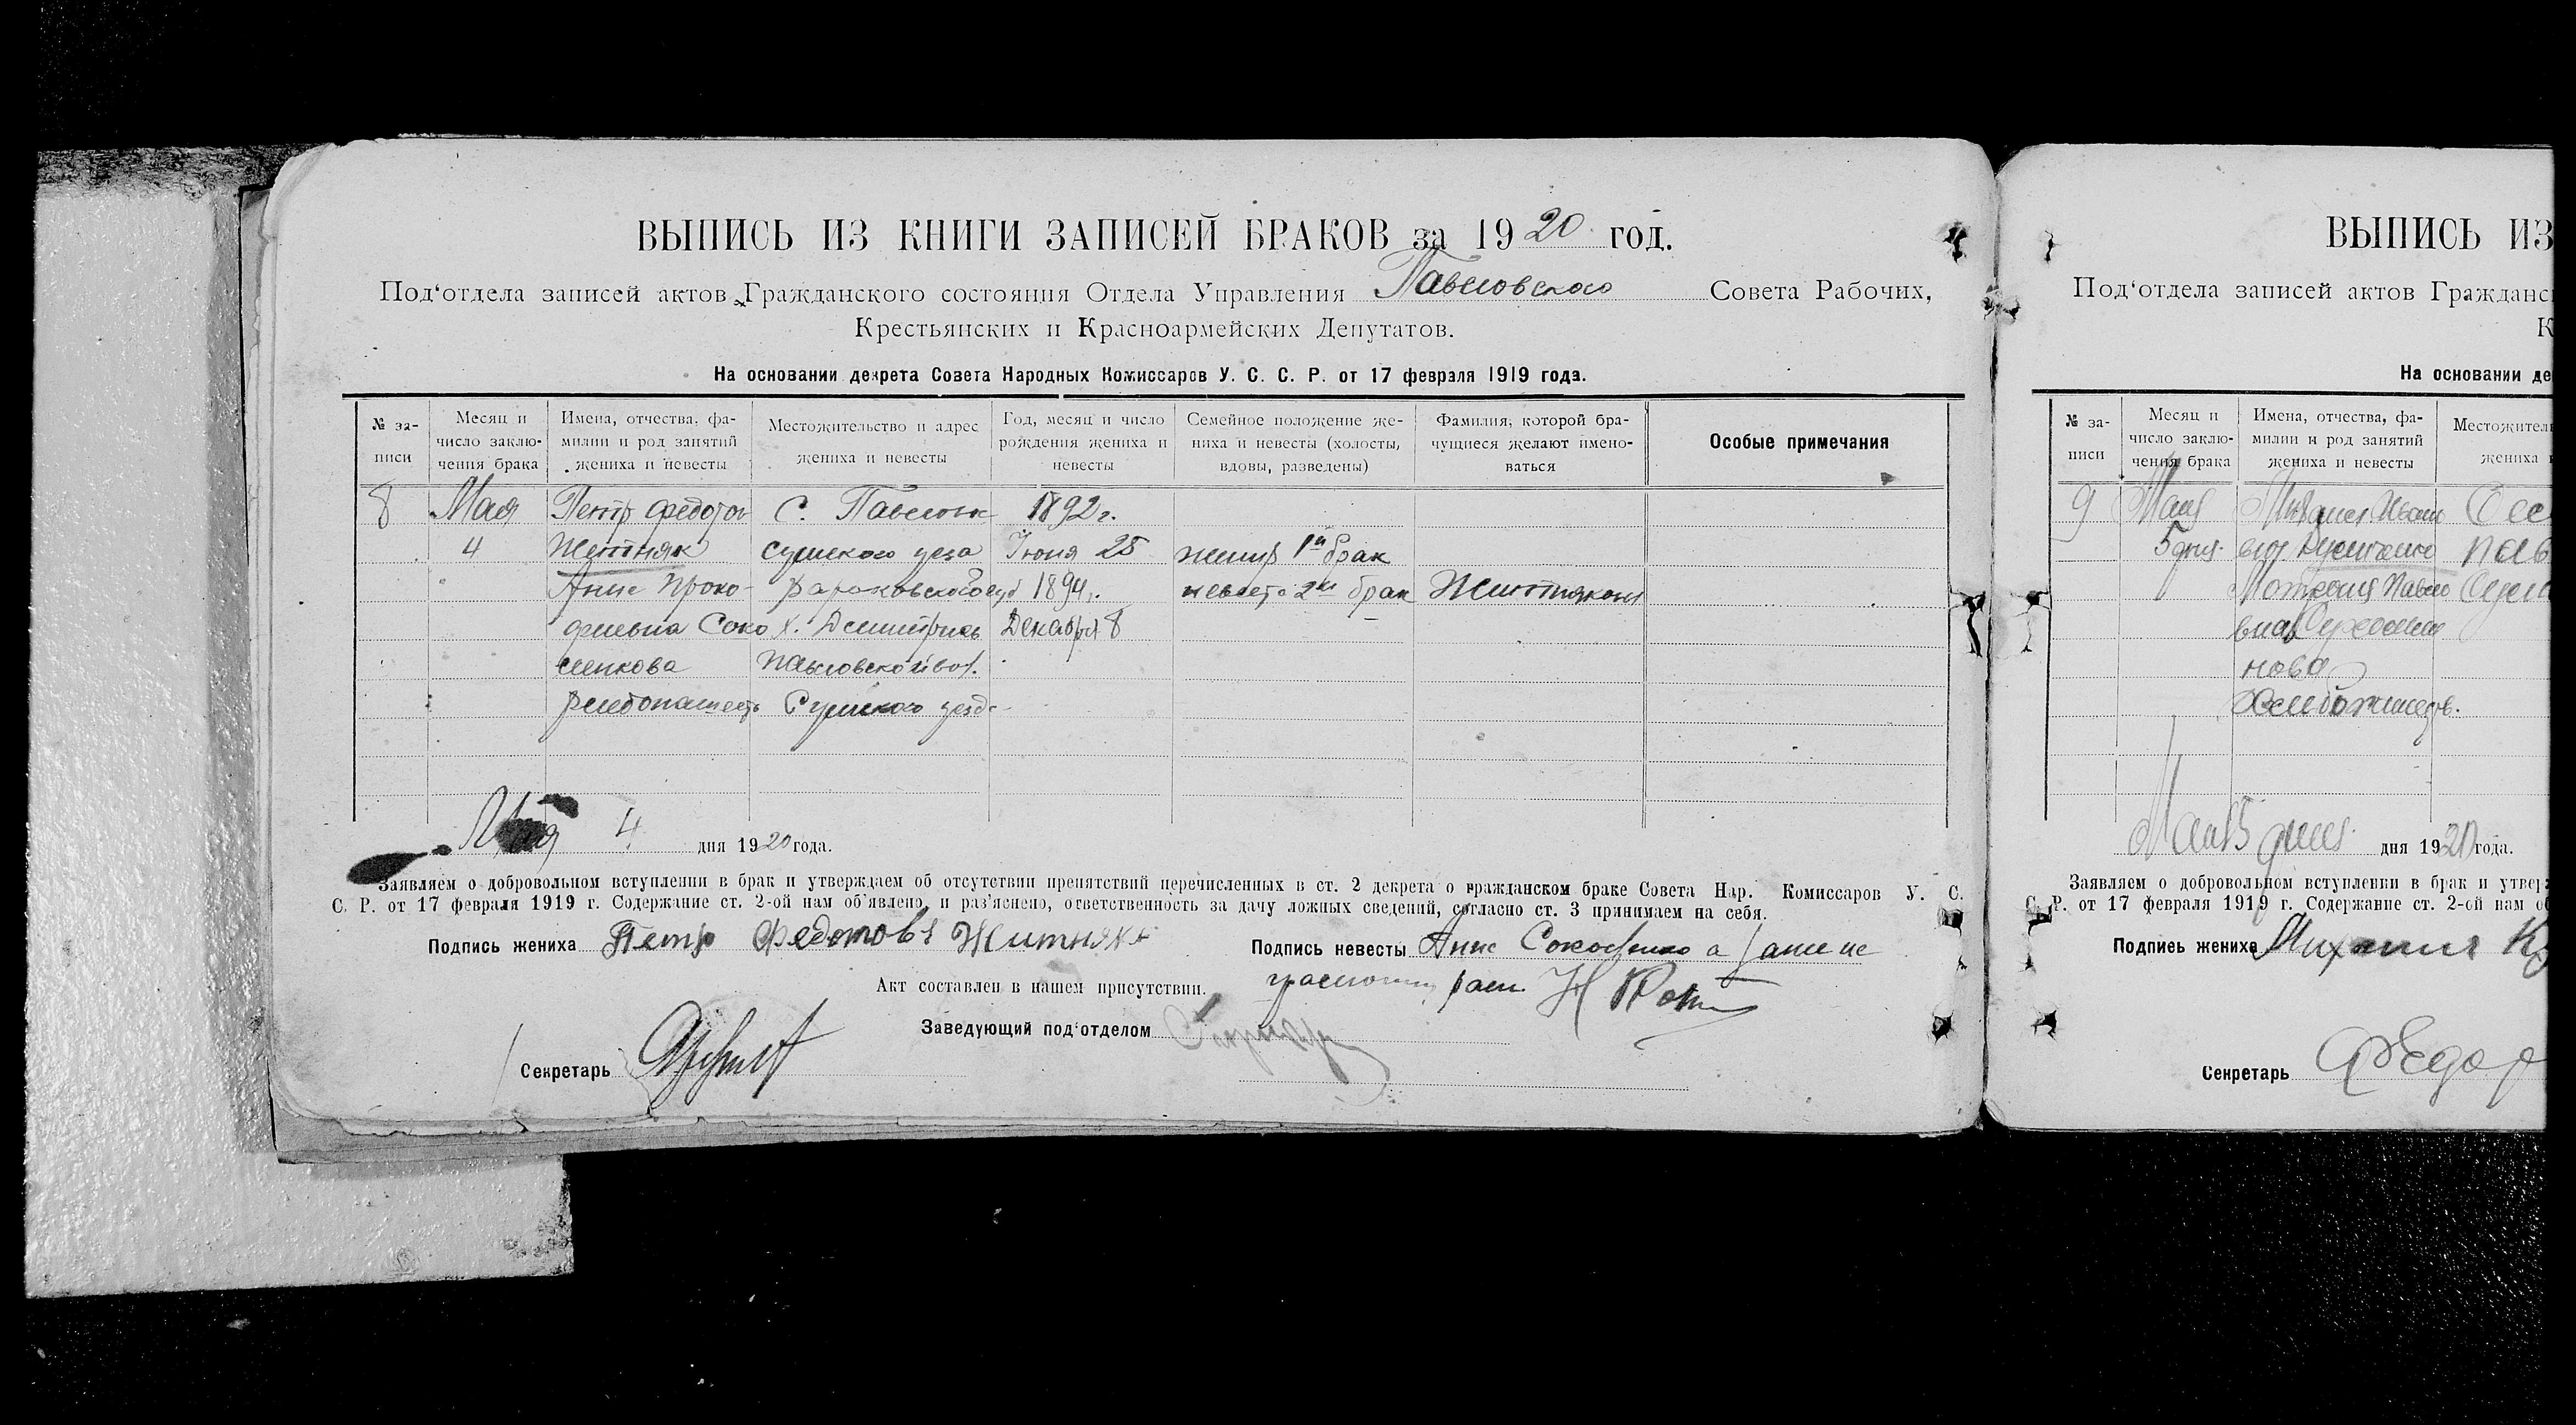 ВЫПИСЬ ИЗ КНИГИ ЗАПИСЕЙ БРАКОВ за 1920 год.
Под‘отдела записей актов Гражданского состояния Отдела Управления Павловского Совета Рабочих,
Крестьянских и Красноармейских Депутатов.
На основании декрета Совета Народных Комиссаров У. С. С. Р. от 17 февраля 1919 года.
№ за-
писи
Месяц и
число заклю-
чения брака
Имена, отчества, фа-
милии и род занятий
жениха и невесты
Местожительство и адрес
жениха и невесты
Год, месяц и число
рождения жениха и
невесты
Семейное положение же-
ниха и невесты (холосты,
вдовы, разведены)
Фамилия, которой бра-
чущиеся желают имено-
ваться
Особые примечания
8 Мая Петр Федотов С. Павловк 1892 г.
4 Житняк сумского уезд Июня 25 жених 1й брак
Анна Проко- 1894 г. невеста 2й брак
фьевна Соко х. Декабря 8
ленкова Павловской вол.
хлебопашець Сумского уезд
Мая 4 дня 1920 года.
Заявляем о добровольном вступлении в брак и утверждаем об отсутствии препятствий перечисленных в ст. 2 декрета о гражданском браке Совета Нар. Комиссаров У. С.
С. Р. от 17 февраля 1919 г. Содержание ст. 2-ой нам об‘явлено и раз‘яснено, ответственность за дачу ложных сведений, согласно ст. 3 принимаем на себя.
Подпись жениха Петр Федотовъ Житняк
Подпись невесты Анна а за нее
Акт составлен в нашем присутствии.
Заведующий под‘отделом
Секретарь
ВЫПИСЬ ИЗ
Под‘отдела записей актов Гражданс
К
На основании де
№ за-
писи
Месяц и
число заклю-
чения брака
Имена, отчества, фа-
милии и род занятий
жениха и невесты
Местожитель
жениха
9 Мая Иван
5 дня Пав
ново
дня 1920 года.
Заявляем о добровольном вступлении в брак и утвер
С. Р. от 17 февраля 1919 г. Содержание ст. 2-ой нам о
Подпись жениха Михаил
Секретарь Федор